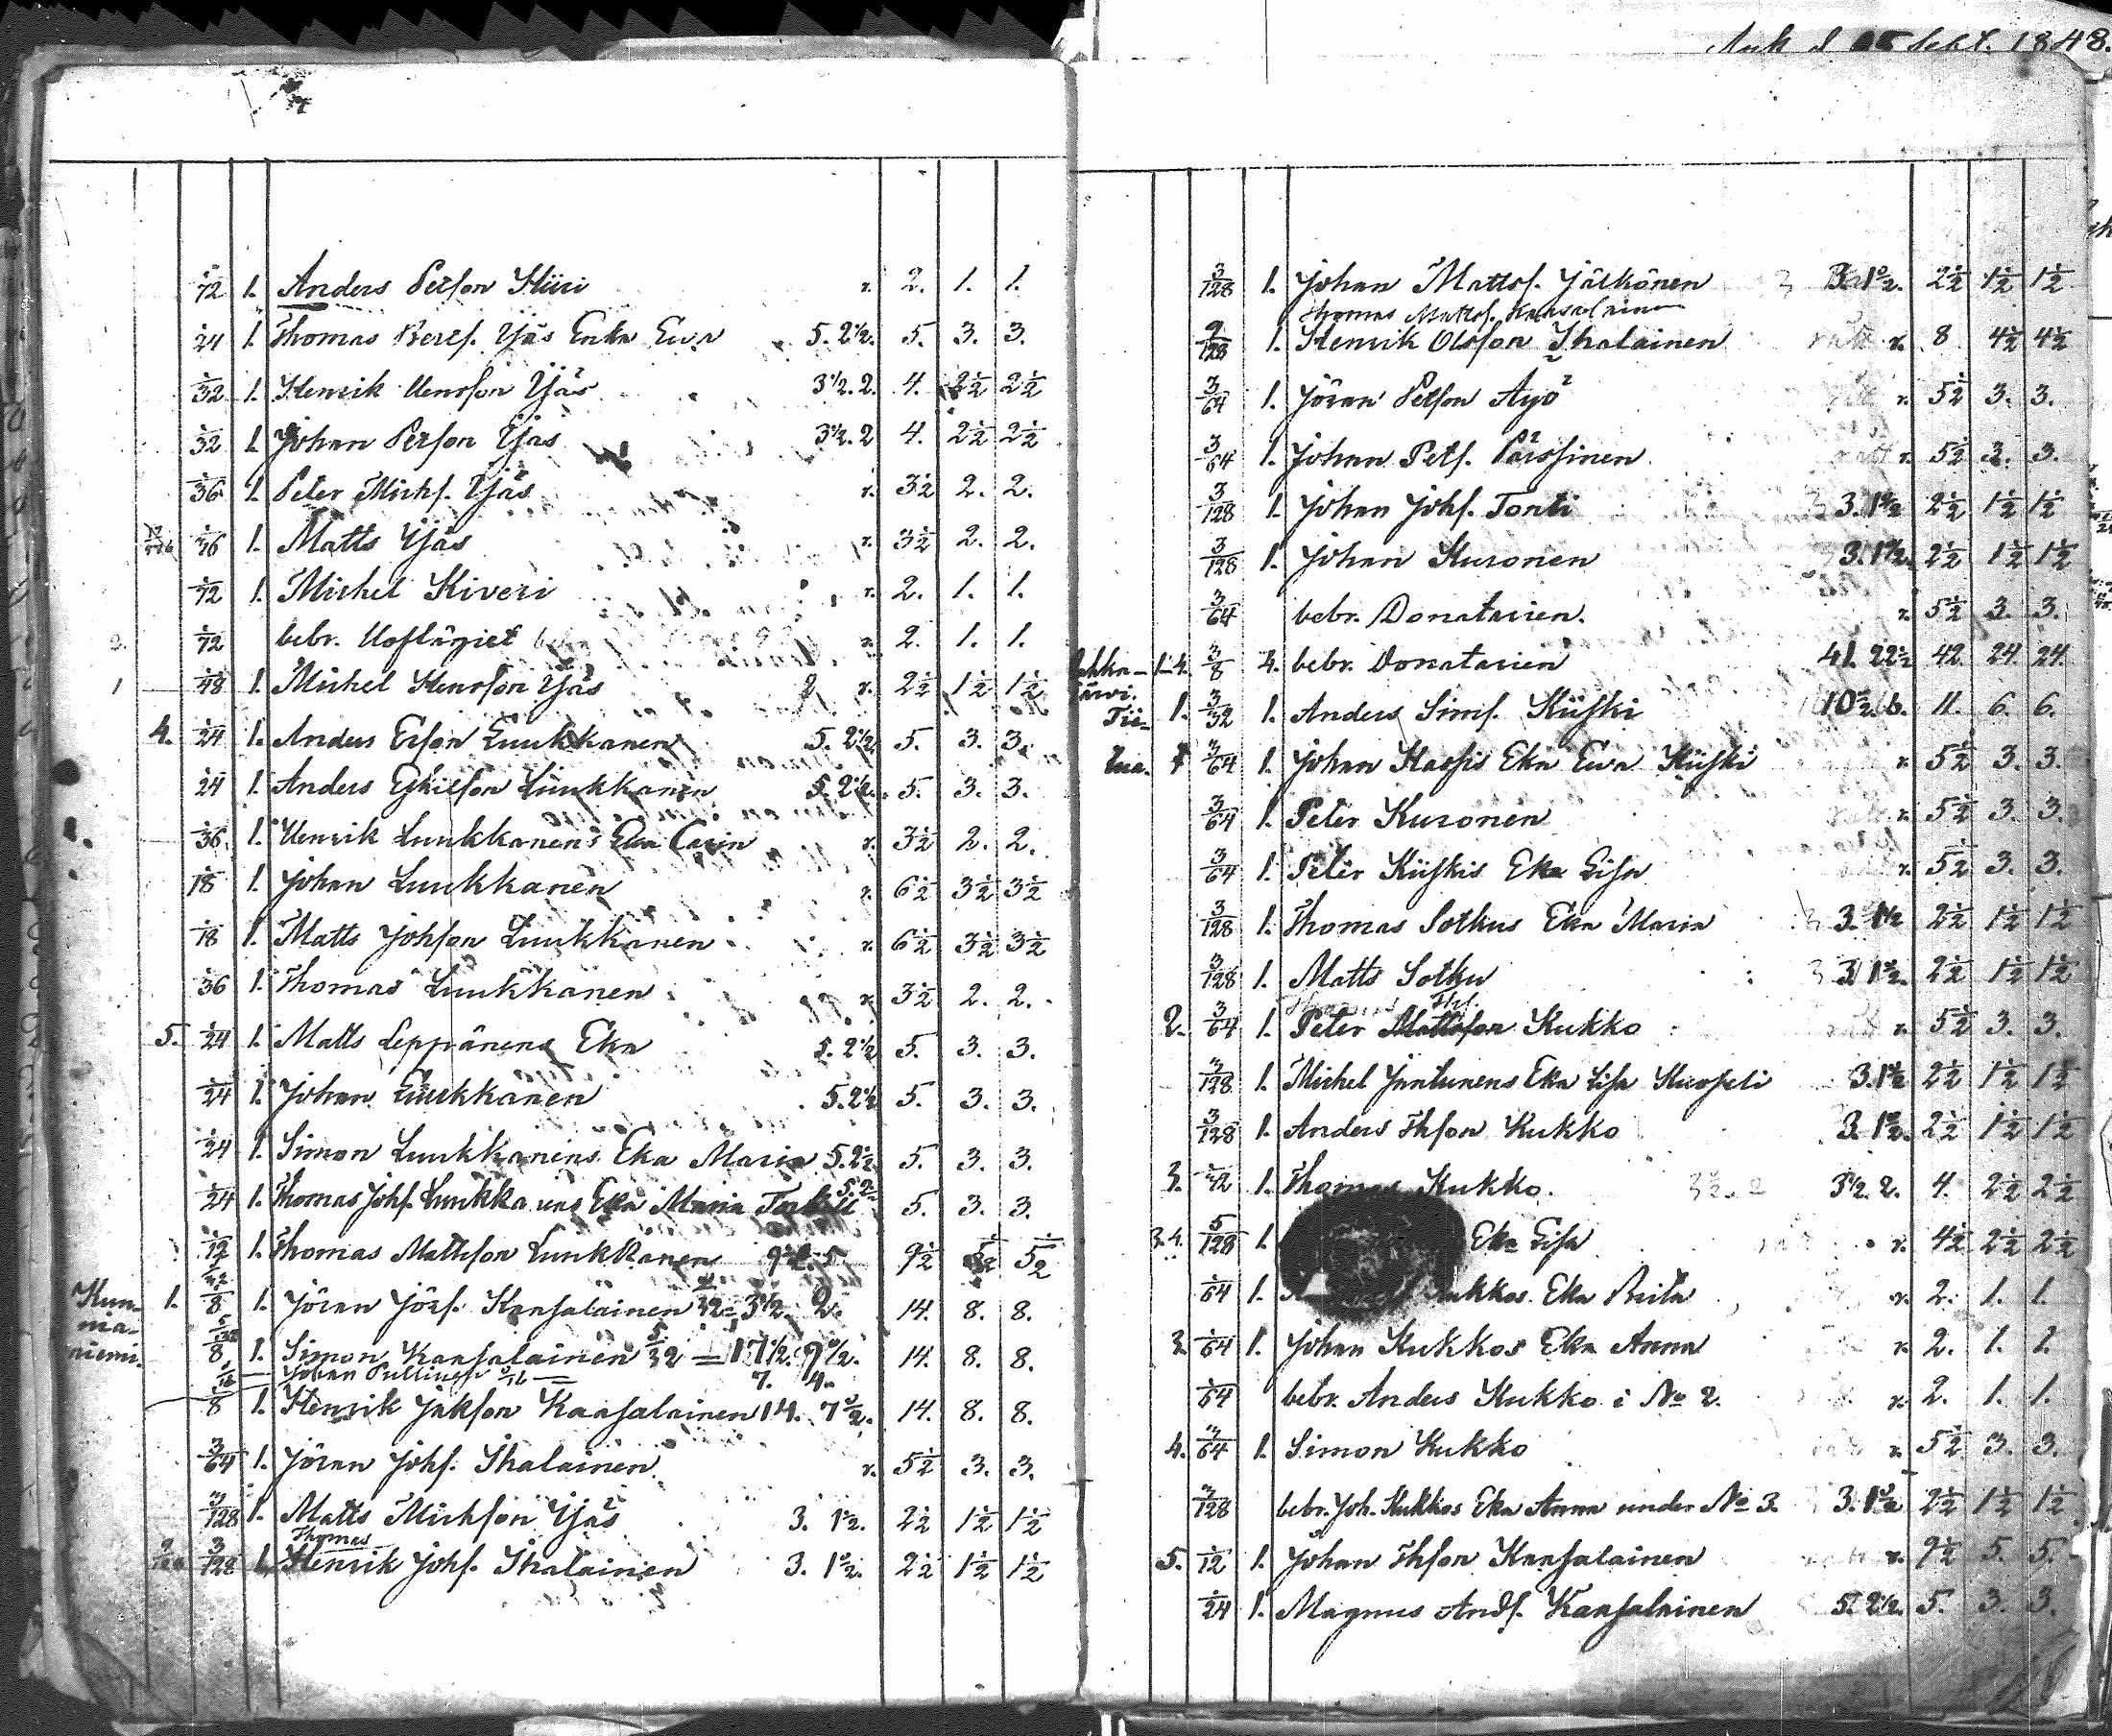 1/72 1. Anders Persson Hiiri r. 2. 1. 1.
1/24 1. Thomas Bertsf. Yjäs Enka Eva 5. 2½. 5. 3. 3.
1/32 1. Henrik Henrsson Yjäs 3½. 2. 4. 2½ 2½
1/32 1. Johan Persson Yjäs 3½. 2 4. 2½ 2½
1/36 1. Peter Michf. Yjäs r. 3½ 2. 2.
1/36 1. Matts Yjäs r. 3½ 2. 2.
1/72 1. Michel Kiveri r. 2. 1. 1.
1/72 bebr. Hoflägret r. 2. 1. 1.
1 1/48 1. Michel Henrsson Yjäs r. 2½ 1½ 1½
4. 1/24 1. Anders Ersson Luukkanen 5. 2½ 5. 3. 3.
1/24 1. Anders Eskilsson Luukkanen 5. 2½. 5. 3. 3.
1/36. 1. Henrik Luukkanens Eka Carin r. 3½ 2. 2.
1/18 1. Johan Luukkanen r. 6½ 3½ 3½
1/18 1. Matts Johsson Luukkanen r. 6½ 3½ 3½
1/36 1. Thomas Luukkanen r. 3½ 2. 2.
5. 1/24 1. Matts Leppänens Eka 5. 2½ 5. 3. 3.
1/24 1. Johan Luukkanen 5. 2½ 5. 3. 3.
1/24 1. Simon Luukkanens Eka Maria 5. 2½ 5. 3. 3.
1/24 1. Thomas Johf. Luukkanens Eka Maria 5. 2½ 5. 3. 3.
1/12 1. Thomas Mattsson Luukkanen 9½. 5 9½ 5½ 5½
Kun-
ma-
niemi. 1. 1/8 1. Jöran Jörf. Kansalainen 3½. 2. 14. 8. 8.
1/8 1. Simon Kansalainen 5/32 = 17½. 9½. 14. 8. 8.
1/16 Johan Pullinen 1/16 = 7. 4.
1/8 1. Henrik Jakson Kansalainen 14. 7½. 14. 8. 8.
3/64 1. Jöran Johf. Ihalainen r. 5½ 3. 3.
3/128 1. Matts Michsson Yjäs 3. 1½. 2½ 1½ 1½
Thomas
3/128 1. Henrik Johf. Ihalainen 3. 1½. 2½ 1½ 1½
Sept. 1848.
3/128 1. Johan Mattsf. Jälkönen 3. 1½. 2½ 1½ 1½
Thomas Mattsf. Kansalainen
9/128 1. Henrik Olsson Ihalainen r. 8 4½ 4½
3/64 1. Jöran Persson Äyö r. 5½ 3. 3.
3/64 1. Johan Petf. Pärssinen r. 5½ 3. 3.
3/128 1. Johan Johf. Tonti 3. 1½ 2½ 1½ 1½
3/128 1. Johan Kuronen 3. 1½. 2½ 1½ 1½
3/64 bebr. Donatarien. r. 5½ 3. 3.
1-4. 3/8 4. bebr. Donatarien 41. 22½ 42. 24. 24.
Tii- 1. 3/32 1. Anders Simf. Kiiski 10½. 6. 11. 6. 6.
3/64 1. Johan Eka Eva Kiiski r. 5½ 3. 3.
3/64 1. Peter Kuronen r. 5½ 3. 3.
3/64 1. Peter Kiiskis Eka Lisa r. 5½ 3. 3.
3/128 1. Thomas Sotkus Eka Maria 3. 1½ 2½ 1½ 1½
3/128 1. Matts Sotku 3. 1½. 2½ 1½ 1½
2. 3/64 1. Peter Mattsson Kukko r. 5½ 3. 3.
3/128 1. Michel Jantunens Eka Lisa 3. 1½ 2½ 1½ 1½
3/128 1. Anders Thsson Kukko 3. 1½. 2½ 1½ 1½
3. 1. Thomas Kukko. 3½. 2. 4. 2½ 2½
3.4. 5/128 1. Eka Lisa r. 4½ 2½ 2½
1/64 1. Kukkos Eka Brita r. 2. 1. 1.
3. 1/64 1. Johan Kukkos Eka Anna r. 2. 1. 1.
1/64 bebr. Anders Kukko i No 2. r. 2. 1. 1.
4. 3/64 1. Simon Kukko r. 5½ 3. 3.
3/128 bebr. Joh. Kukkos Eka Anna under No 3. 3. 1½ 2½ 1½ 1½
5. 1/12 1. Johan Thsson Kansalainen r. 9½ 5. 5.
1/24 1. Magnus Andf. Kansalainen 5. 2½. 5. 3. 3.